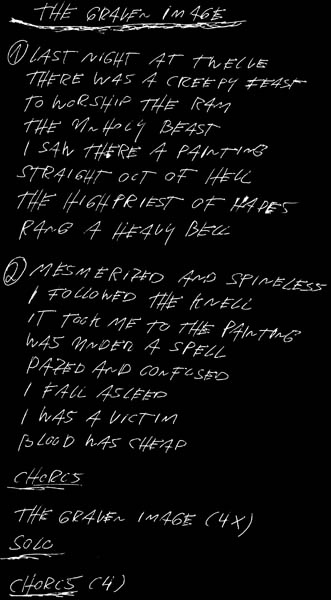 THE GRAVEN IMAGE
1 LAST NIGHT AT TWELVE
THERE WAS A CREEPY FEAST
TO WORSHIP THE RAM
THE UNHOLY BEAST
I SAW THERE A PAINTING
STRAIGHT OUT OF HELL
THE HIGHPRIEST OF HADES
RANG A HEAVY BELL
2 MESMERIZED AND SPINELESS
I FOLLOWED THE KNELL
IT TOOK ME TO THE PAINTING
WAS UNDER A SPELL
DAZED AND CONFUSED
I FALL ASLEEP
I WAS A VICTIM
BLOOD WAS CHEAP
CHORUS
THE GRAVEN IMAGE (4X)
SOLO
CHORUS (4)